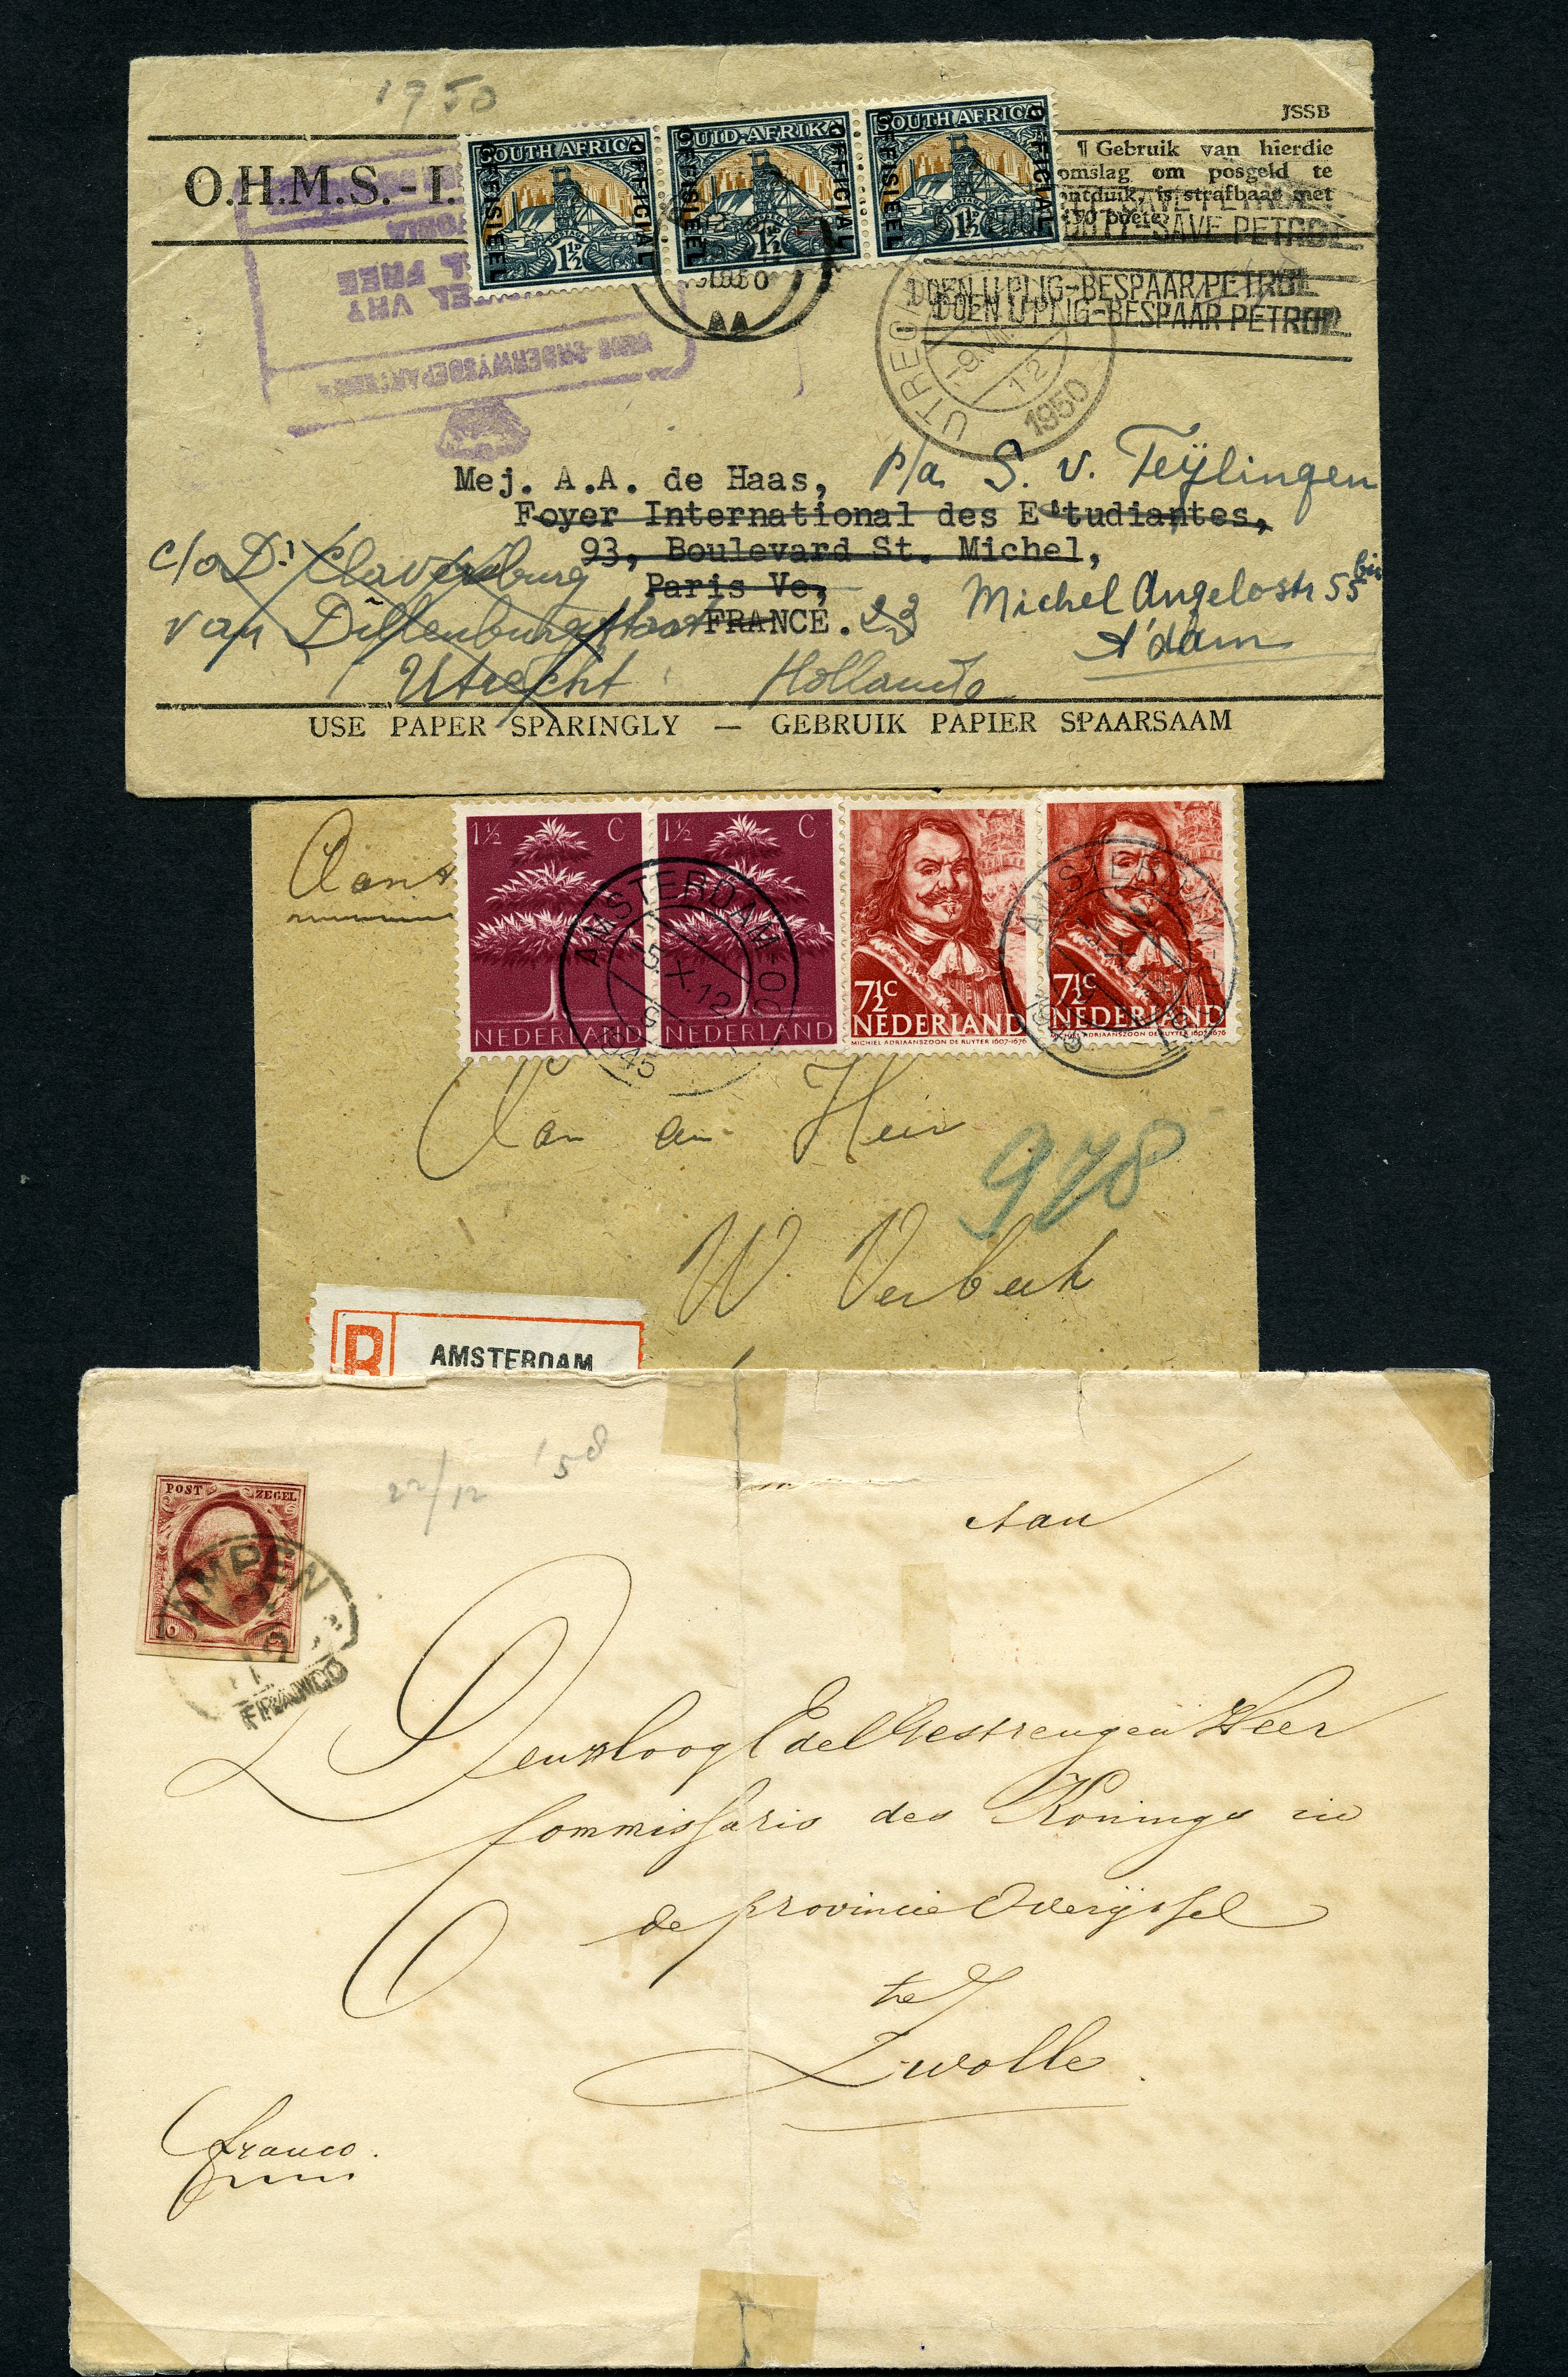 1950
JSSB
O.H.M.S.-I.
SOUTH AFRICA OFFISIEEL OFFICIAL POSTAGE 1½D
SUID-AFRIKA OFFISIEEL OFFICIAL 1½D
SOUTH AFRICA OFFISIEEL OFFICIAL POSTAGE 1½D
¶ Gebruik van hierdie
omslag om posgeld te
ontduik, is strafbaar met
£50 boete.
SAVE PETROL
DOEN U PLIG-BESPAAR PETROL
DOEN U PLIG-BESPAAR PETROL
VRY
& FREE
ONDERWYSDEPARTEMENT
1950
AA
UTRECHT
-9.VIII
12
1950
Mej. A.A. de Haas, p/a S. v. Teÿlingen
Foyer International des E'tudiantes,
93, Boulevard St. Michel,
Paris Ve,
FRANCE. 23
c/o Dr Clavenburg
van Dillenburgstraat
Utrecht Hollande
Michel Angelostr 55 bis
A'dam
USE PAPER SPARINGLY — GEBRUIK PAPIER SPAARSAAM
1½ C NEDERLAND
1½ C NEDERLAND
7½c NEDERLAND
MICHIEL ADRIAANSZOON DE RUYTER 1607-1676
7½c NEDERLAND
MICHIEL ADRIAANSZOON DE RUYTER 1607-1676
AMSTERDAM
5.X.12
1945
Aan
Aan den Heer
978
W Verbeek
R AMSTERDAM
POST ZEGEL
10
KAMPEN
FRANCO
22/12 '58
Aan
Den HoogEdelGestrengen Heer
Commissaris des Konings in
de provincie Overijssel
te
Zwolle.
franco.